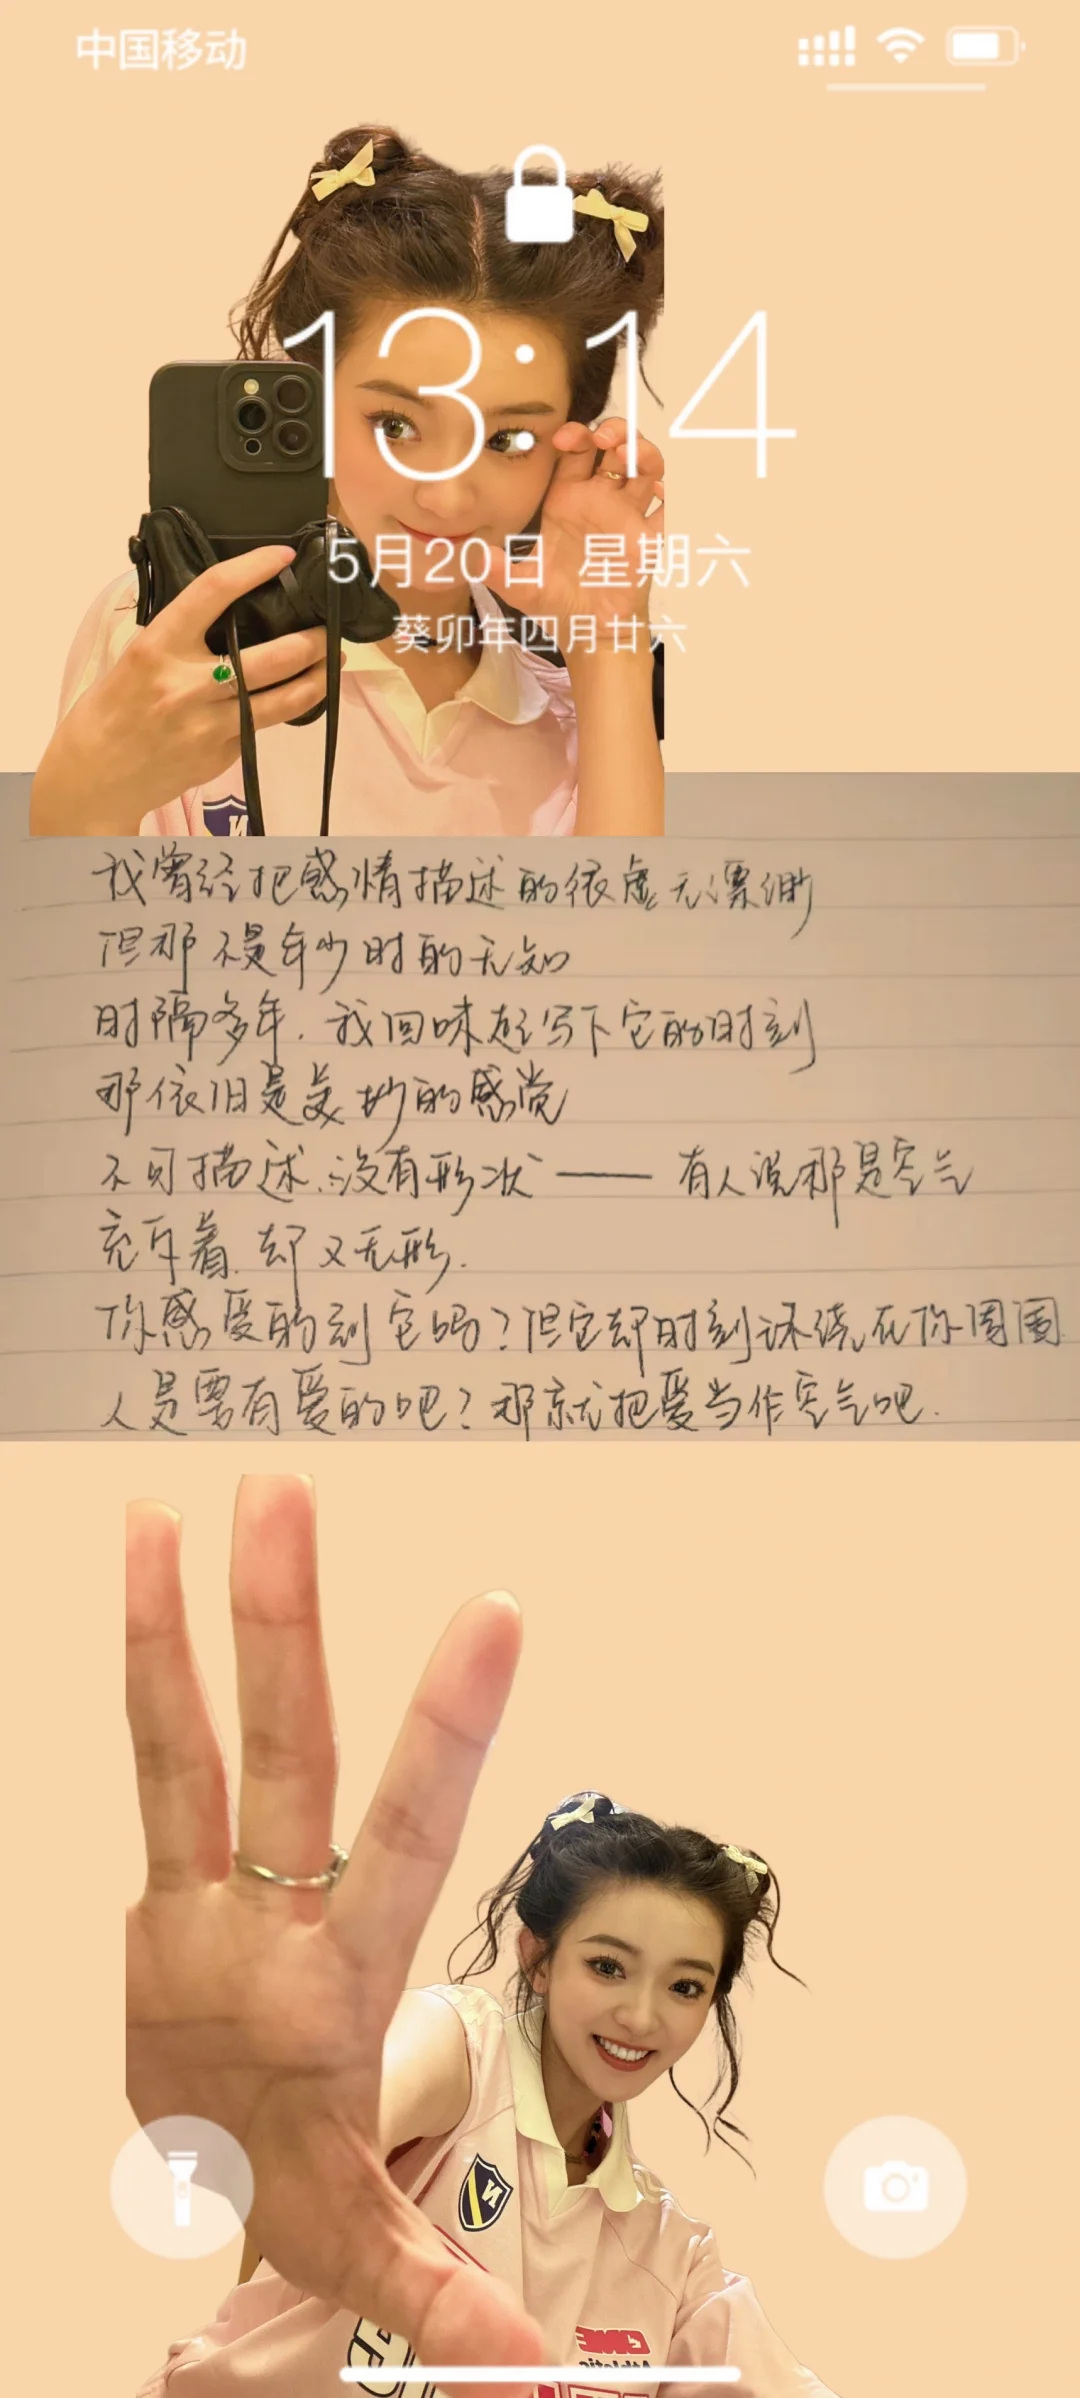 中国移动
13:14
5月20日 星期六
癸卯年四月廿六
我曾经把感情描述的很虚无漂渺
但那不是年少时的无知
时隔多年.我回味起写下它的时刻
那依旧是美妙的感觉
不可描述.没有形状——有人说那是空气
充斥着.却又无形.
你感受的到它吗?但它却时刻环绕在你周围
人是要有爱的吧?那就把爱当作空气吧.
N
N